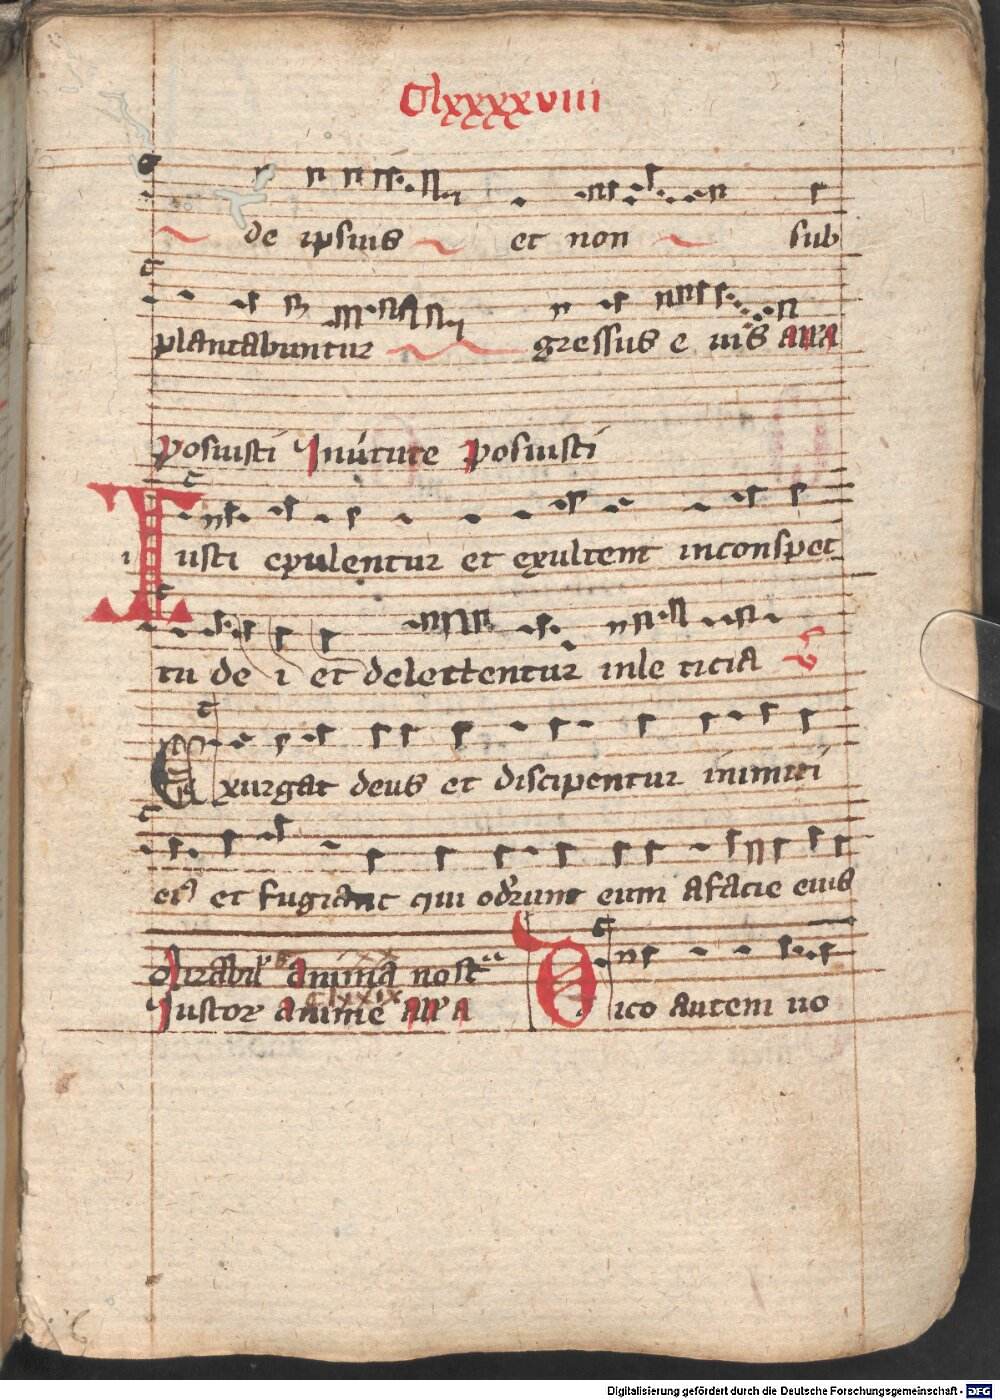 Clxxxxviii
de ipsius et non sub
plantabuntur gressus e uis alla
posuisti Inuirtute posuisti
i Iusti epulentur et exultent inconspec
tu de i et delectentur inle ticia
Exurgat deus et discipentur inimici
eius et fugiant qui oderunt eum afacie eius
Mirabil' anima nost
clxxix
Iustor anime alla Dico autem uo
Digitalisierung gefördert durch die Deutsche Forschungsgemeinschaft - DFG